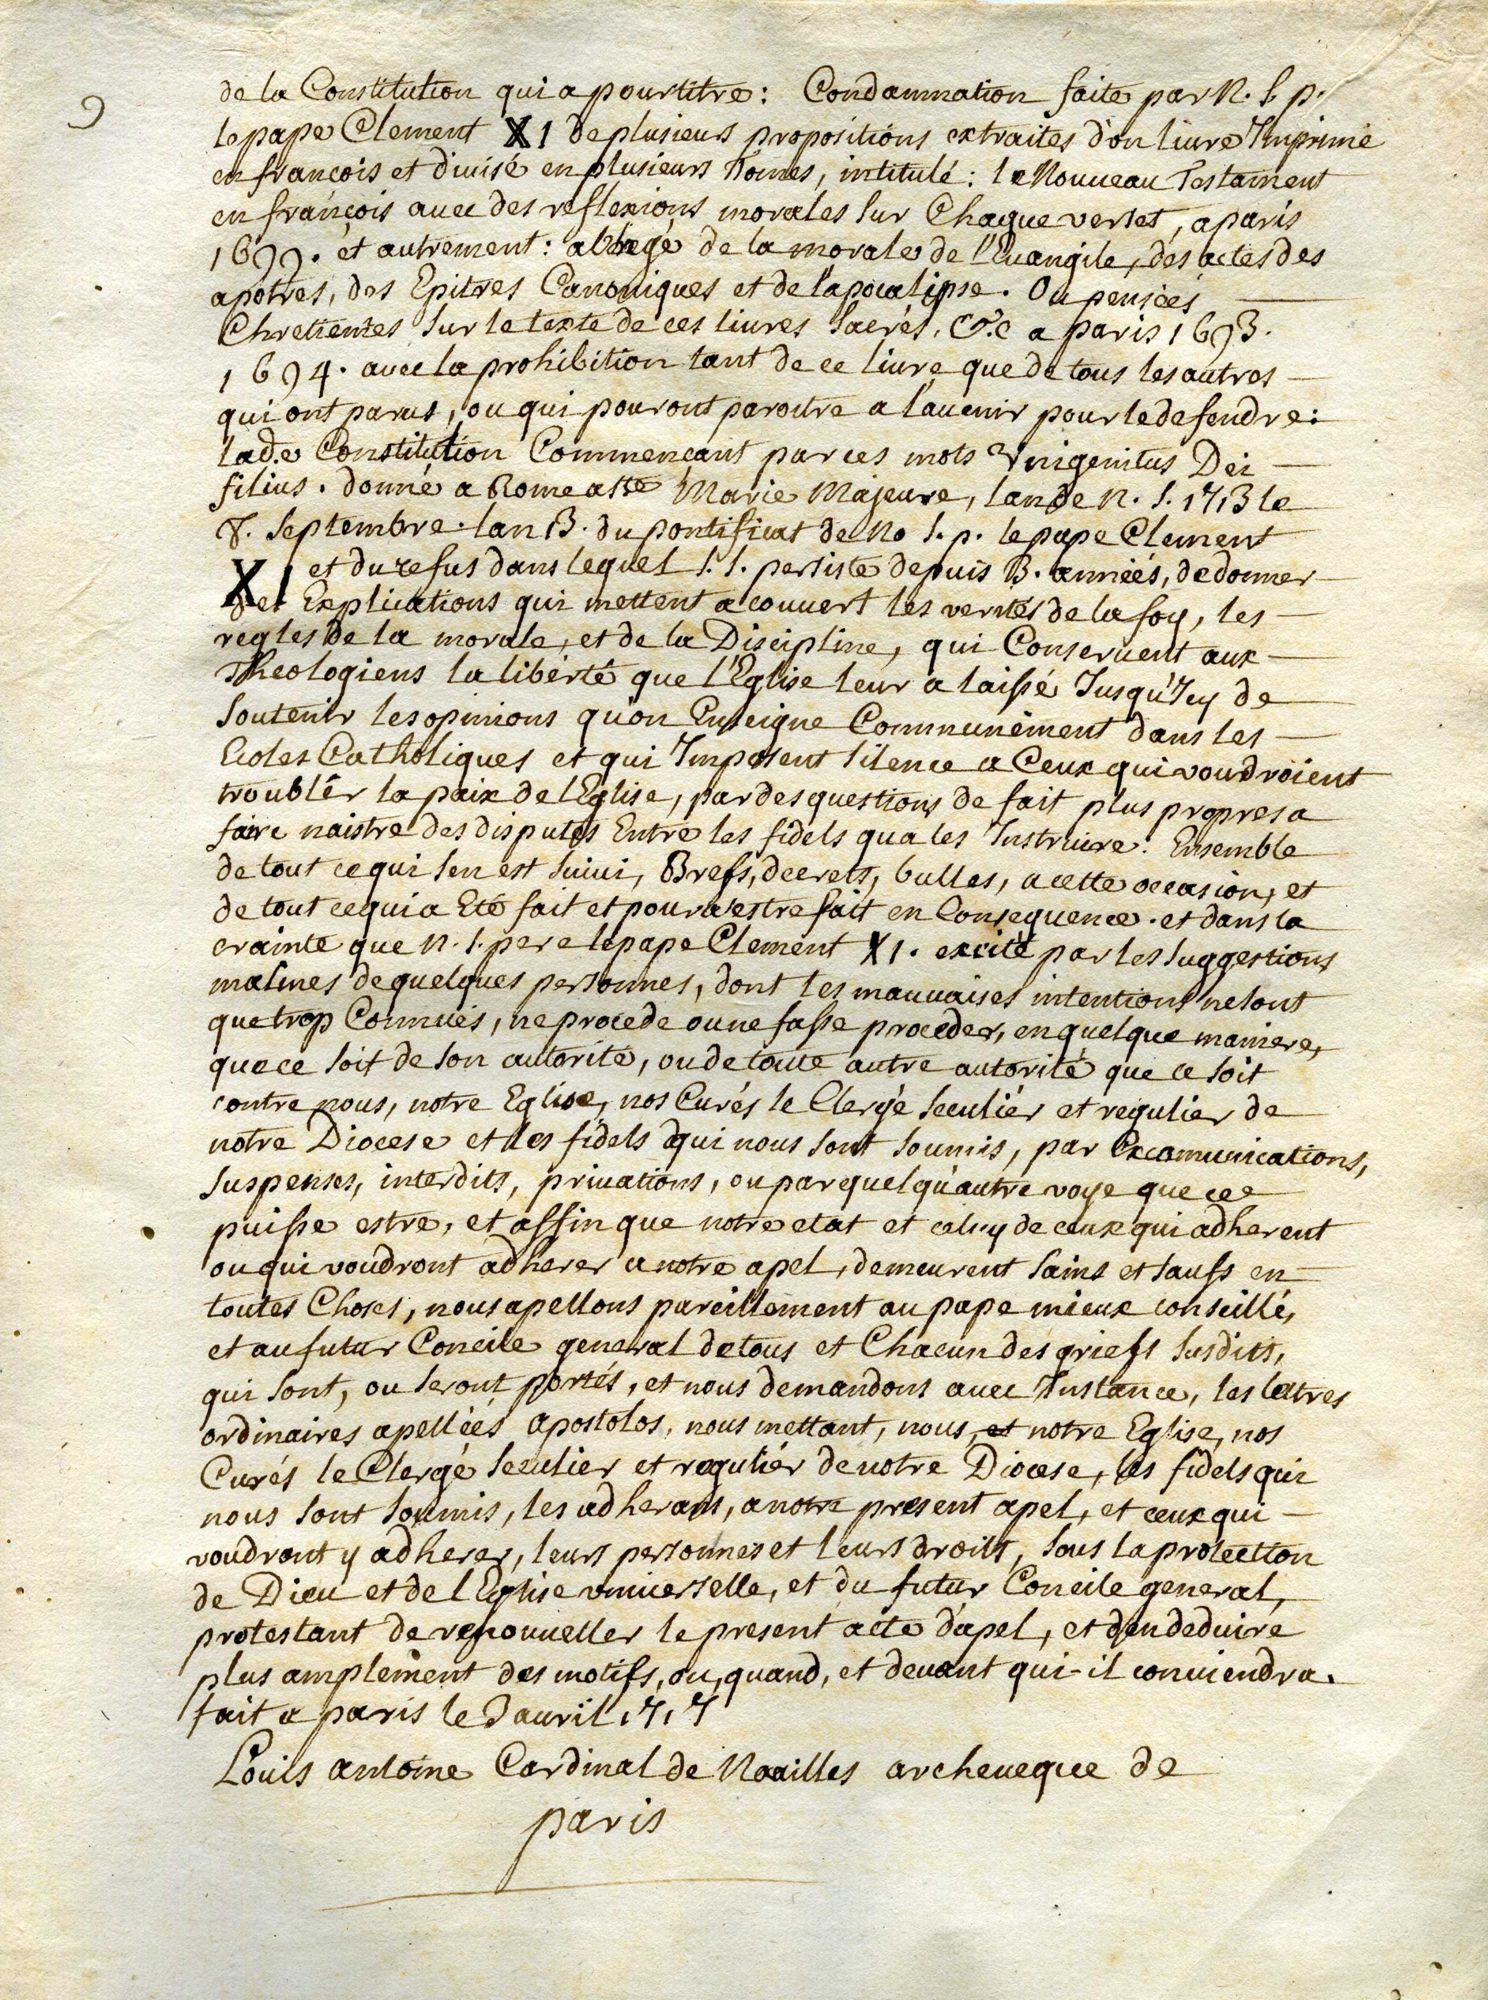 9
de la Constitution qui a pour titre : Condamnation faite par N. S. p.
le pape Clement XI de plusieurs propositions extraites d'on liure Imprimé
en francois et diuisé en plusieurs Tomes, intitulé : le Nouueau Testament
en françois auec des reflexions morales sur Chaque verset, a paris
1699. et autrement : abregé de la morale de l'Euangile, des actes des
apotres, des Epitres Canoniques et de l'apocalipse. Ou pensées
Chretienes sur le texte de ces liures sacrés, &c a paris 1693.
1694. auec la prohibition tant de ce liure que de tous les autres
qui ont parus, ou qui pouront paroitre a l'auenir pour le defendre :
lad.e Constitution Commençant par ces mots Vnigenitus Dei
filius. donné a Rome a Ste Marie Majeure, lan de N. S. 1713 le
8. septembre. lan 13. du pontificat de No S. p. le pape Clement
XI et du refus dans lequel S. S. persiste depuis 3. années, de donner
des Explications qui mettent a couuert les verités de la foy, les
regles de la morale, et de la Discipline, qui Conseruent aux
Theologiens la liberté que l'Eglise leur a laissé Jusqu'Icy de
soutenir les opinions qu'on Enseigne Communément dans les
Ecoles Catholiques et qui Imposent silence a Ceux qui voudroient
troublér la paix de l'Eglise, par des questions de fait plus propres a
faire naistre des disputes Entre les fidels qua les Instruire. Ensemble
de tout ce qui sen est suiui, Brefs, decrets, bulles, a cette occasion, et
de tout ce qui a Eté fait et poura estre fait en Consequence. et dans la
crainte que N. S. pere le pape Clement XI. excité par les suggestions
malines de quelques personnes, dont les mauuaises intentions ne sont
que trop Connues, ne procede ou ne fasse proceder, en quelque maniere,
que ce soit de son autorité, ou de toute autre autorité que ce soit
contre nous, notre Eglise, nos Curés le Clergé seculiér et regulier de
notre Diocese et les fidels qui nous sont soumis, par Excomunications,
suspenses, interdits, priuations, ou par quelqu'autre voye que ce
puisse estre, et affin que notre etat et celuy de ceux qui adherent
ou qui voudront adherer a notre apel, demeurent sains et saufs en
toutes Choses, nous apellons pareillement au pape mieux conseillé,
et au futur Concile general de tous et Chacun des griefs susdits,
qui sont, ou seront portés, et nous demandons auec Instance, les lettres
ordinaires apellées apostolos, nous mettant, nous, et notre Eglise, nos
Curés le Clergé seculier et reguliér de notre Diocese, les fidels qui
nous sont soumis, les adherans, a notre present apel, et ceux qui
voudront y adherer, leurs personnes et leurs droits, sous la protection
de Dieu et de l'Eglise vniuerselle, et du futur Concile general,
protestant de renouueller le present acte d'apel, et d'en deduire
plus amplement des motifs, ou, quand, et deuant qui il conuiendra.
fait a paris le 3 auril 1717
Louis antoine Cardinal de Noailles archeueque de
paris